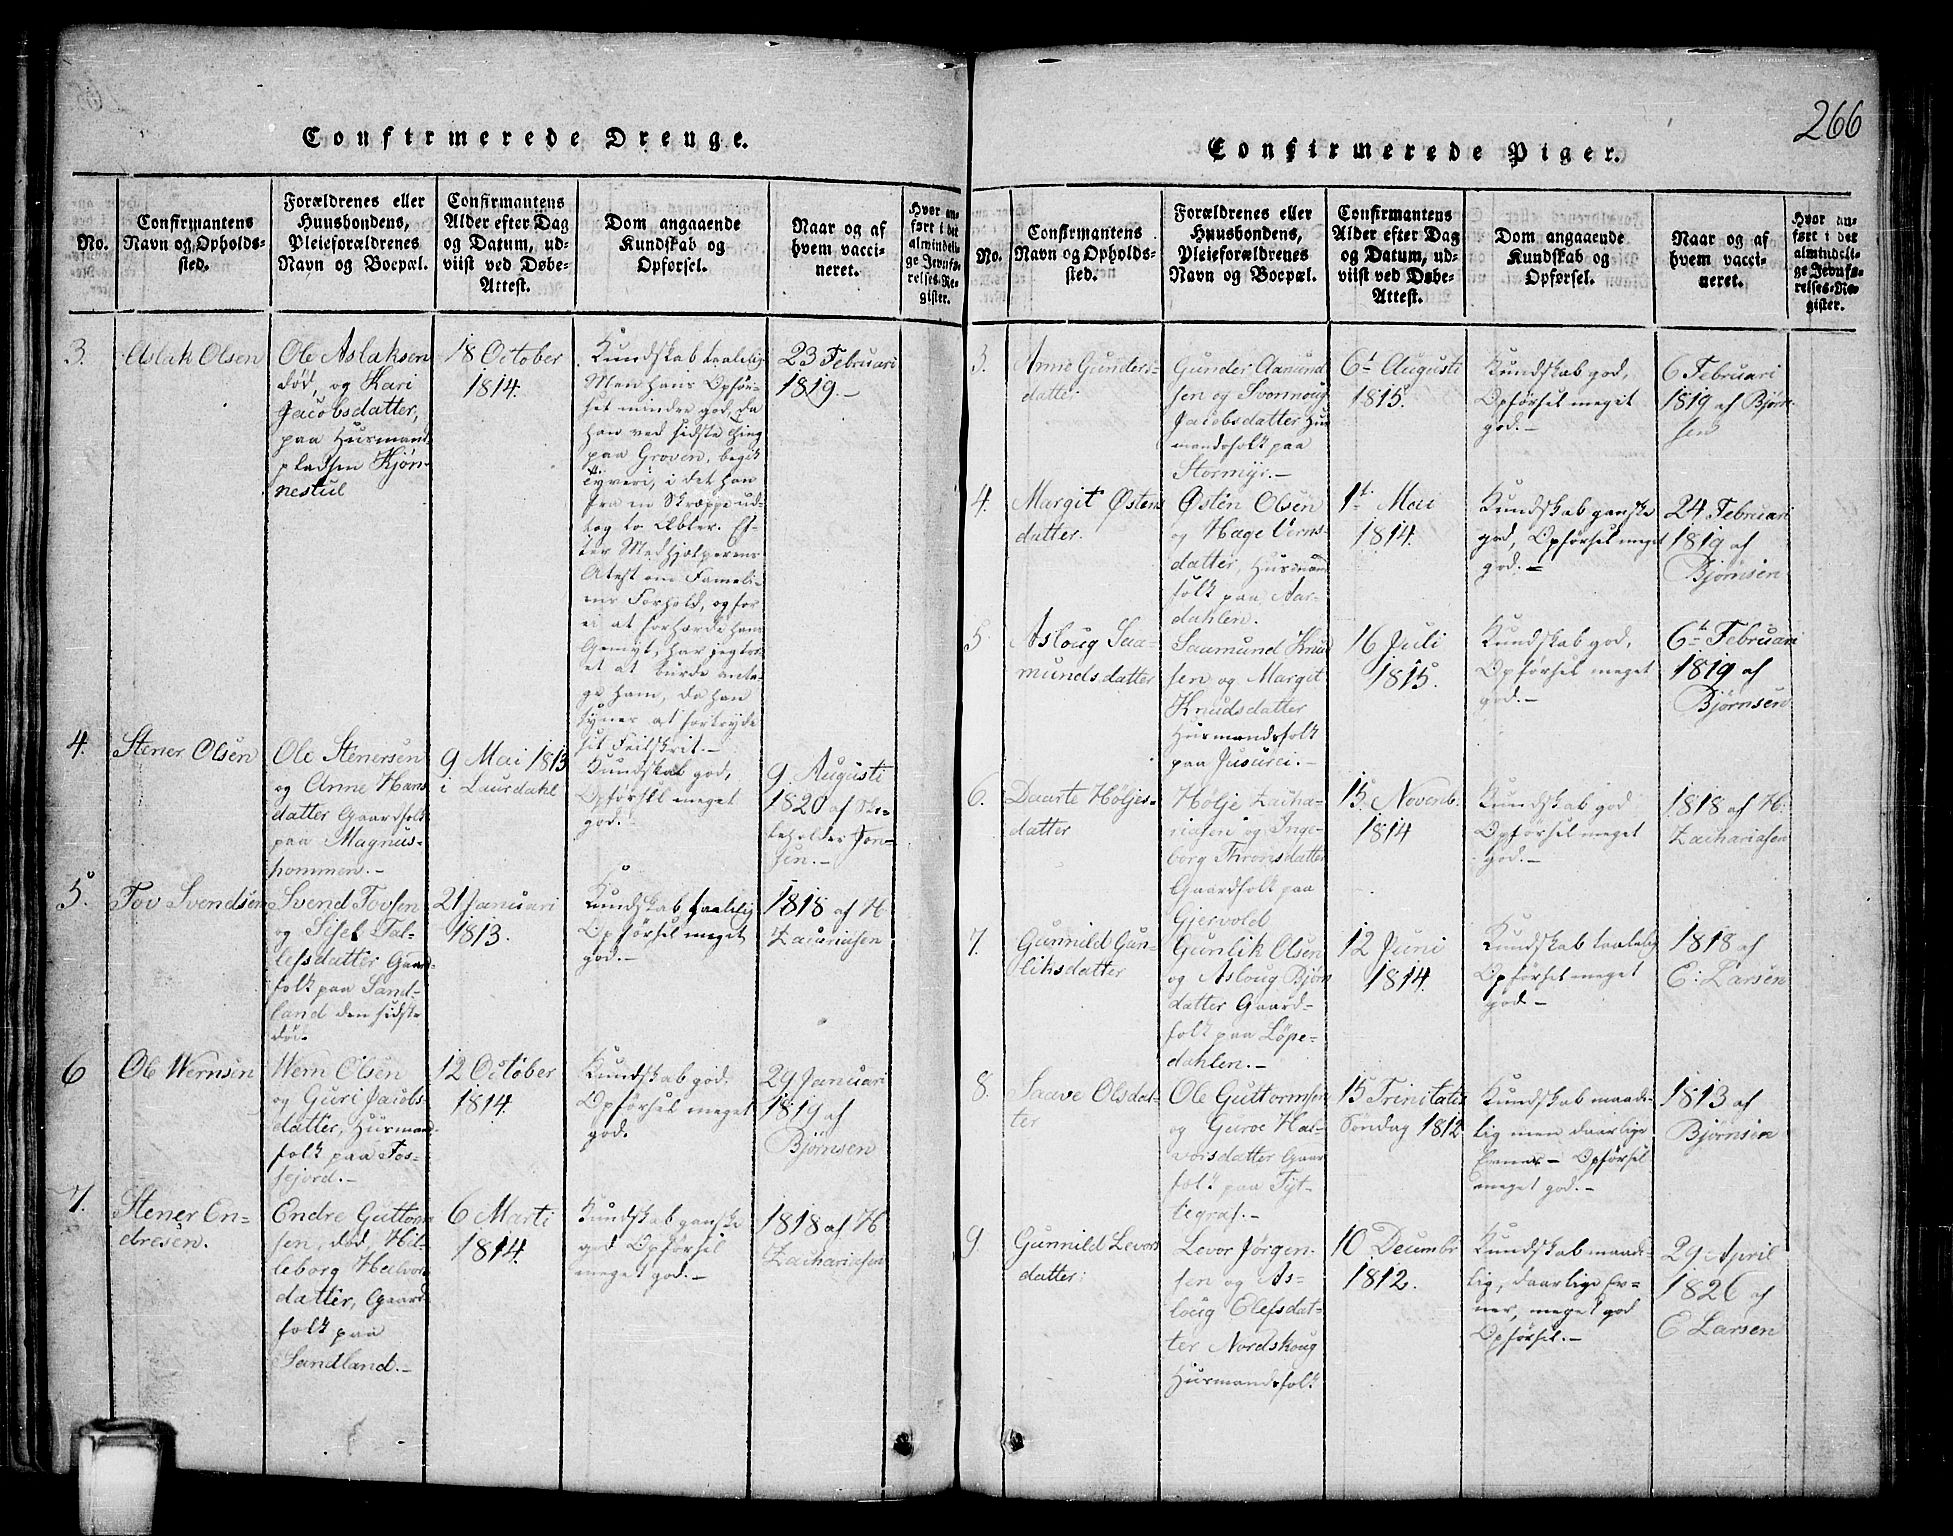 266
Confirmerede Drenge.
No.
Confirmantens
Navn og Opholds-
sted.
Forældrenes eller
Huusbondens,
Pleieforældrenes
Navn og Boepæl.
Confirmantens
Alder efter Dag
og Datum, ud-
viist ved Døbe-
Attest.
Dom angaaende
Kundskab og
Opførsel.
Naar og af
hvem vacci-
neret.
Hvor an-
ført i det
almindeli-
ge Jevnfø-
relses-Re-
gister.
3.
Aslak Olsen
Ole Aslaksen
død, og Kari
Jacobsdatter,
paa Husmand
pladsen Kjøn-
nestul
18 October
1814.
Kundskab taalelig
Men hans Opfør-
sel mindre god, da
han ved sidste Ting
paa Groven, begik
Tyveri, i det han
fra en Skræppe ud-
tog to Æbler. Ef-
ter Medhjælperens
Atest om Fameli-
ens Forhold, og for
ei at forhærde hans
Gemyt, har jeg tro-
et at burde anta-
ge ham, da han
synes at fortryde
sit Feilskrit.-
23 Februari
1819.-
4.
Stener Olsen
Ole Stenersen
og Anne Hans
datter Gaardfolk
paa Magnus-
hommen.-
9 Mai 1813
i Laurdahl
Kundskab god,
Opførsel meget
god.-
9 Augusti
1820 af
beholder Jon-
sen.-
5.
Tov Svendsen
Svend Tovsen
og Sisel Tal-
lefsdatter Gaard
folk paa Sand-
land den sidste
død.
21 Januari
1813.
Kundskab taalelig
Opførsel meget
god.-
1818 af H
Zachriasen
6
Ole Wernsen
Wern Olsen
og Guri Jacobs-
datter, Husmand
folk paa Fos-
fejord.-
12 October
1814.
Kundskab god.
Opførsel meget
god.
29 Januari
1819 af
Bjørnsen
7.
Stener En-
dresen.
Endre Guttorm
sen, død Hil-
leborg Halvors
datter, Gaard
folk paa
Sandland.-
6 Marti
1814.
Kundskab ganske
god Opførsel
meget god.-
1818 af H
Zachariasen
Confirmerede Piger.
No.
Confirmantens
Navn og Opholds-
sted.
Forældrenes eller
Huusbondens,
Pleieforældrenes
Navn og Boepæl.
Confirmantens
Alder efter Dag
og Datum, ud-
viist ved Døbe-
Attest.
Dom angaaende
Kundskab og
Opførsel.
Naar og af
hvem vacci-
neret.
Hvor an-
ført i det
almindeli-
ge Jevnfø-
relses-Re-
gister.
3.
Anne Gunders-
datter
Gunder Aamund
sen og Svonnoug
Jacobsdatter Hus
mandsfolk paa
Stormyr.-
6t Augusti
1815.
Kundskab god,
Opførsel meget
god.-
6 Februari
1819 af Bjørn-
sen
4.
Margit Østens
datter.
Østen Olsen
og Hæge Verns-
datter, Husmand
folk paa Aar-
dahlen.
1t Mai
1814.
Kundskab ganske
god, Opførsel meget
god.-
24 Februari
1819 af
Bjørnsen
5
Asloug Saa-
mundsdatter
Saamund Knud
sen og Margit
Knudsdatter
Husmandsfolk
paa Jusurei.-
16 Juli
1815.
Kundskab god,
Opførsel meget
god.-
6t Februari
1819 af
Bjørnsen
6.
Daarte Høljes-
datter
Hølje Zacha-
riasen og Inge-
borg Thronsdatter
Gaardfolk paa
Gjervold
15 Novenb.
1814
Kundskab god
Opførsel meget
god.-
1818 af H.
Zachariasen
7.
Gunnild Gun-
liksdatter
Gunlik Olsen
og Asloug Bjørn
datter Gaard-
folk paa Løpe-
dahlen.-
12 Juni
1814.
Kundskab taalelig
Opførsel meget
god.-
1818 af
E: Larsen
8.
Saave Olsdat-
ter
Ole Guttormsen
og Guroe Hal-
vorsdatter Gaar
folk paa Tyt-
tegraf.-
15 Trinitatis
Søndag 1812
Kundskab maade-
lig men daarlige
Evner- Opførsel
meget god.-
1813 af
Bjørnsen
9.
Gunnild Levors
datter:
Levor Jørgen-
sen og As-
loug Olefsdat-
ter Nordskoug
Husmandsfolk
10 Decumbr
1812.
Kundskab maade-
lig, daarlige Ev-
ner, meget god
Opførsel.-
29 April
1826 af
E Larsen